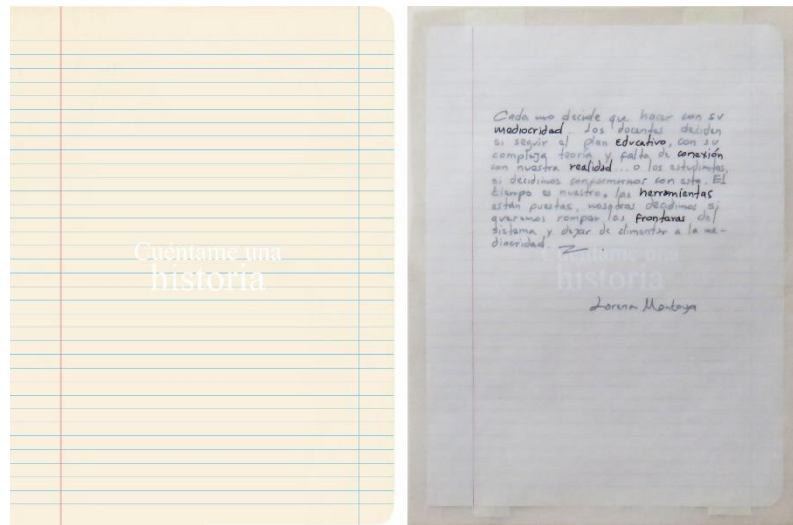 Cuéntame una
historia
Cada uno decide que hacer con su
mediocridad. Los docentes deciden
si seguir el plan educativo, con su
compleja teoría y falta de conexión
con nuestra realidad... o los estudiantes,
si decidimos conformarnos con esto. El
tiempo es nuestro, las herramientas
están puestas, nosotros decidimos si
queremos romper las fronteras del
sistema y dejar de alimentar a la me-
diocridad.
Cuéntame una
historia
Lorena Montoya